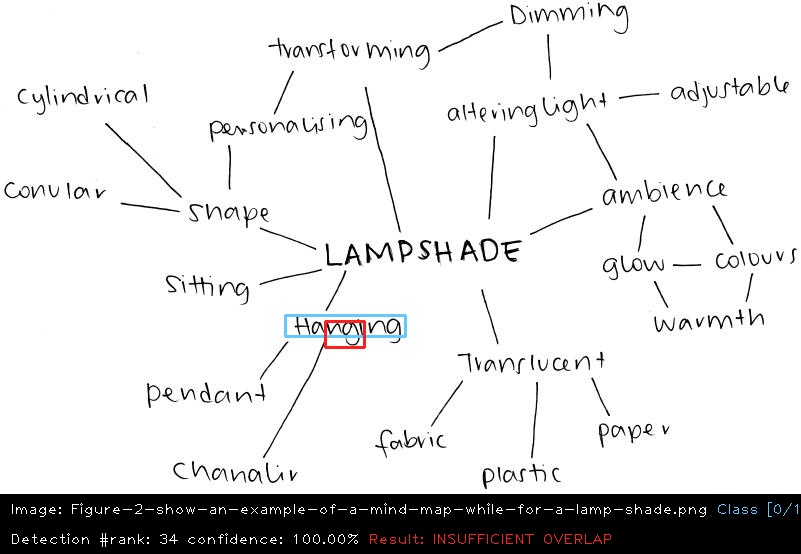 Dimming
transforming
Cylindrical
adjustable
altering light
personalising
Conular
shape
ambience
LAMPSHADE
glow
colours
Sitting
Hanging
warmth
Translucent
pendant
fabric
paper
Chanaliv
plastic
Image: Figure-2-show-an-example-of-a-mind-map-while-for-a-lamp-shade.png Class [0/1
Detection #rank: 34 confidence: 100.00% Result: INSUFFICIENT OVERLAP